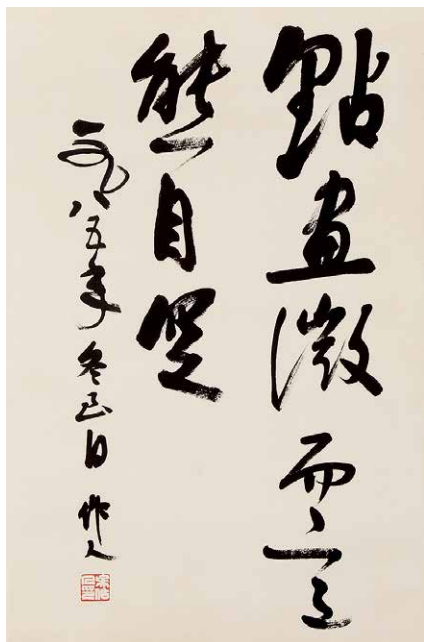 點畫微而意
態自足
一九八五年冬至日 作人